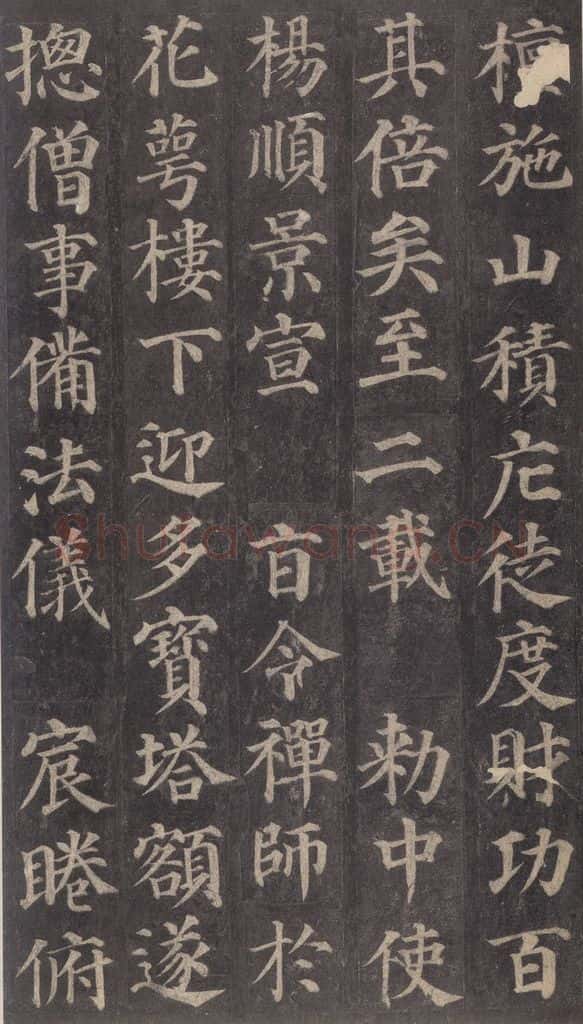 檀施山積庀徒度財功百
其倍矣至二載 勑中使
楊順景宣 旨令禪師於
花萼樓下迎多寶塔額遂
揔僧事備法儀 宸睠俯
shufawang.cn